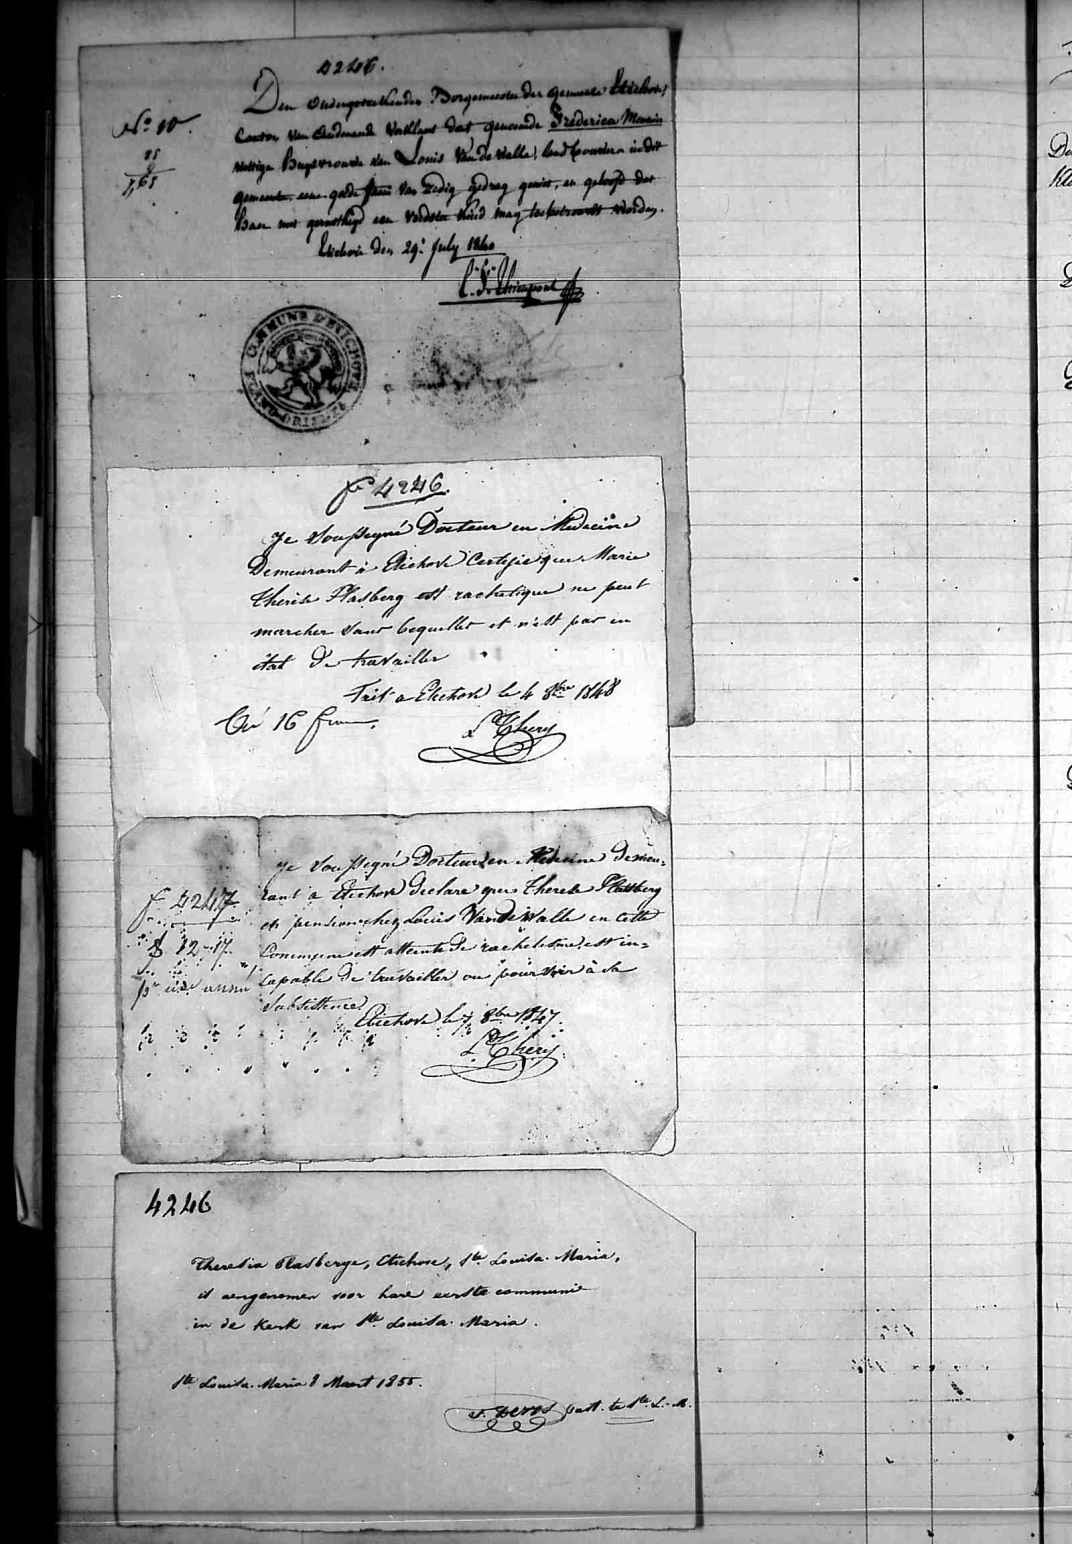 4246.
Den Ondergeteekenden Borgemeester der gemeente Etichove,
Canton van Audenarde Verklaert dat genoemde Frederica
No 10.
wettige Huysvrouw van Louis Van de Walle, in dit
gemeente, eene goede faem van Zedig gedrag geniet, en geloofd dat
haer met gerustheyd een Voedster Kind mag toebetrouwt worden.
Etichove den 29: July 1840
COMMUNE D'ETICHOVE
FLAND. ORIENTE
fo 4246.
Je Soussigné Docteur en Medecine
Demeurant à Etichove Certifie que Marie
Therèse Plasberg est rachitique ne peut
marcher sans bequilles et n'est pas en
état de travailler
Fait a Etichove le 4 8bre 1848
16
L Thery
Je Soussigné Docteur en Medecine demeu=
rant a Etichove declare que Therese Plasberg
f 4247.
en pension chez Louis Van de Walle en cette
12 17
Commune est atteinte de rachitisme, est in=
capable de travailler ou pourvoir à sa
Subsistence
Etichove le 7 8bre 1847.
L. Thery
4246
Theresia Plasberge, Etichove, Ste Louisa-Maria,
is aengenomen voor hare eerste communie
in de Kerk van Ste Louisa-Maria.
Ste Louisa-Maria 8 Maert 1855.
past. te Ste L.-M.